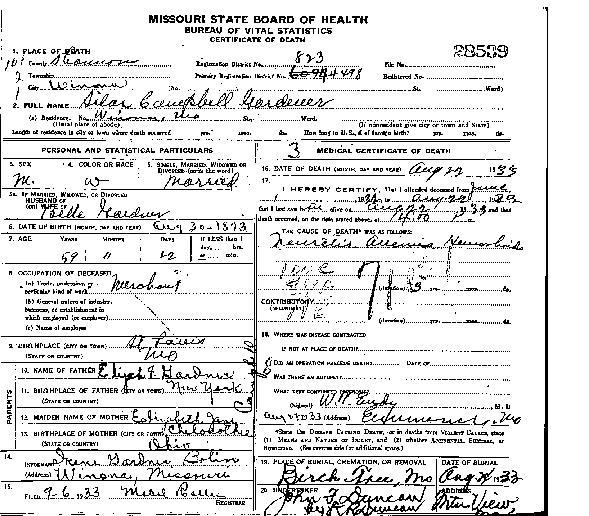 MISSOURI STATE BOARD OF HEALTH
BUREAU OF VITAL STATISTICS
CERTIFICATE OF DEATH
28539
1. PLACE OF DEATH
County Shannon Registration District No. 823 File No.
Township Primary Registration District No. 4498 Registered No.
City Winona (No. St. Ward)
2. FULL NAME Silas Campbell Gardener
(a) Residence. No. Winona, Mo St. Ward.
(Usual place of abode) (If nonresident give city or town and State)
Length of residence in city or town where death occurred yrs. mos. ds. How long in U. S., if of foreign birth? yrs. mos. ds.
PERSONAL AND STATISTICAL PARTICULARS
3. SEX 4. COLOR OR RACE 5. SINGLE, MARRIED, WIDOWED OR
DIVORCED (write the word)
M. W Married
5a. IF MARRIED, WIDOWED, OR DIVORCED
HUSBAND OF
(or) WIFE OF Gardner
6. DATE OF BIRTH (MONTH, DAY AND YEAR) Aug 30-1873
7. AGE YEARS MONTHS DAYS If LESS than 1
day, hrs.
59 11 or min.
8. OCCUPATION OF DECEASED
(a) Trade, profession, or
particular kind of work Merchant
(b) General nature of industry,
business, or establishment in
which employed (or employer)
(c) Name of employer
9. BIRTHPLACE (CITY OR TOWN) St Louis
(STATE OR COUNTRY) Mo
PARENTS
10. NAME OF FATHER Gardner
11. BIRTHPLACE OF FATHER (CITY OR TOWN) New York
(STATE OR COUNTRY)
12. MAIDEN NAME OF MOTHER
13. BIRTHPLACE OF MOTHER (CITY OR TOWN)
(STATE OR COUNTRY) Ohio
14.
INFORMANT Irene Gardner
(Address) Winona, Missouri
15.
FILED 9-6 1933
REGISTRAR
3 MEDICAL CERTIFICATE OF DEATH
16. DATE OF DEATH (MONTH, DAY AND YEAR) Aug 22 1933
17.
I HEREBY CERTIFY, That I attended deceased from June
that I last saw alive on Aug 22 1933 and that
death occurred, on the date stated above, at
THE CAUSE OF DEATH* WAS AS FOLLOWS:
CONTRIBUTORY
(SECONDARY)
(duration) yrs. mos. ds.
18. WHERE WAS DISEASE CONTRACTED
IF NOT AT PLACE OF DEATH?
DID AN OPERATION PRECEDE DEATH? DATE OF
WAS THERE AN AUTOPSY?
WHAT TEST CONFIRMED DIAGNOSIS?
(Signed) M. D.
(Address) Eminence, Mo
*State the DISEASE CAUSING DEATH, or in deaths from VIOLENT CAUSES, state
(1) MEANS AND NATURE OF INJURY, and (2) whether ACCIDENTAL, SUICIDAL, or
HOMICIDAL. (See reverse side for additional space.)
19. PLACE OF BURIAL, CREMATION, OR REMOVAL DATE OF BURIAL
Birch Tree, Mo Aug 1933
20. UNDERTAKER ADDRESS
John F. Duncan Mtn View,
by Duncan